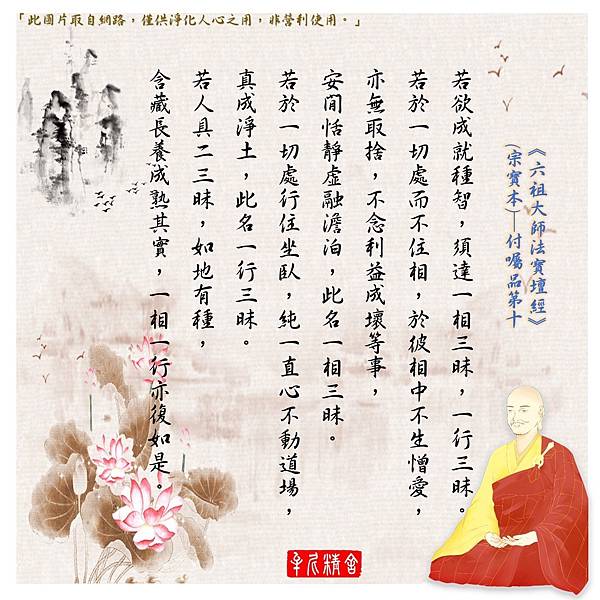 「此圖片取自網路，僅供淨化人心之用，非營利使用。」
《六祖大師法寶壇經》
(宗寶本)—付囑品第十
若欲成就種智，須達一相三昧，一行三昧。
若於一切處而不住相，於彼相中不生憎愛，
亦無取捨，不念利益成壞等事，
安閒恬靜虛融澹泊，此名一相三昧。
若於一切處行住坐臥，純一直心不動道場，
真成淨土，此名一行三昧。
若人具二三昧，如地有種，
含藏長養成熟其實，一相一行亦復如是。
精舍